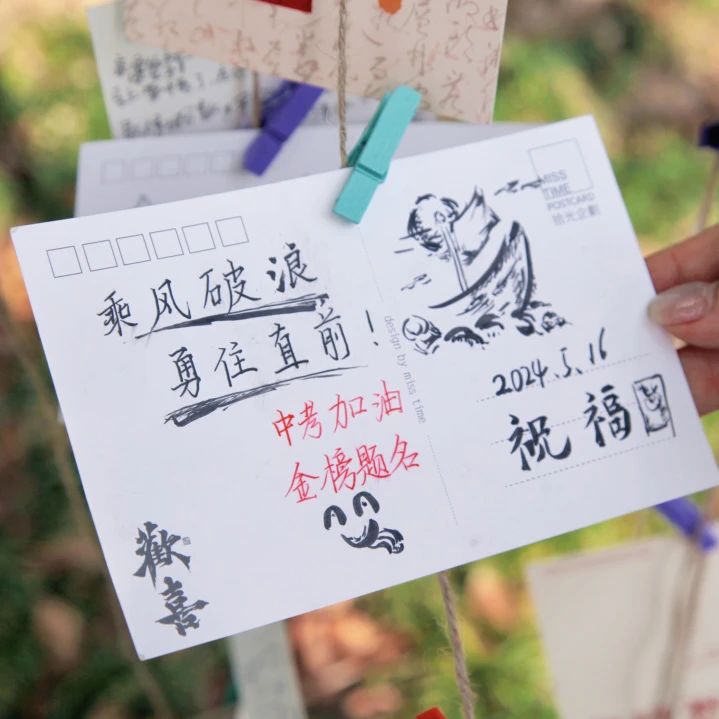 乘风破浪
勇住直前！
中考加油
金榜题名
歡喜
design by miss time
MISS
TIME
POSTCARD
拾光企劃
2024.5.16
祝福